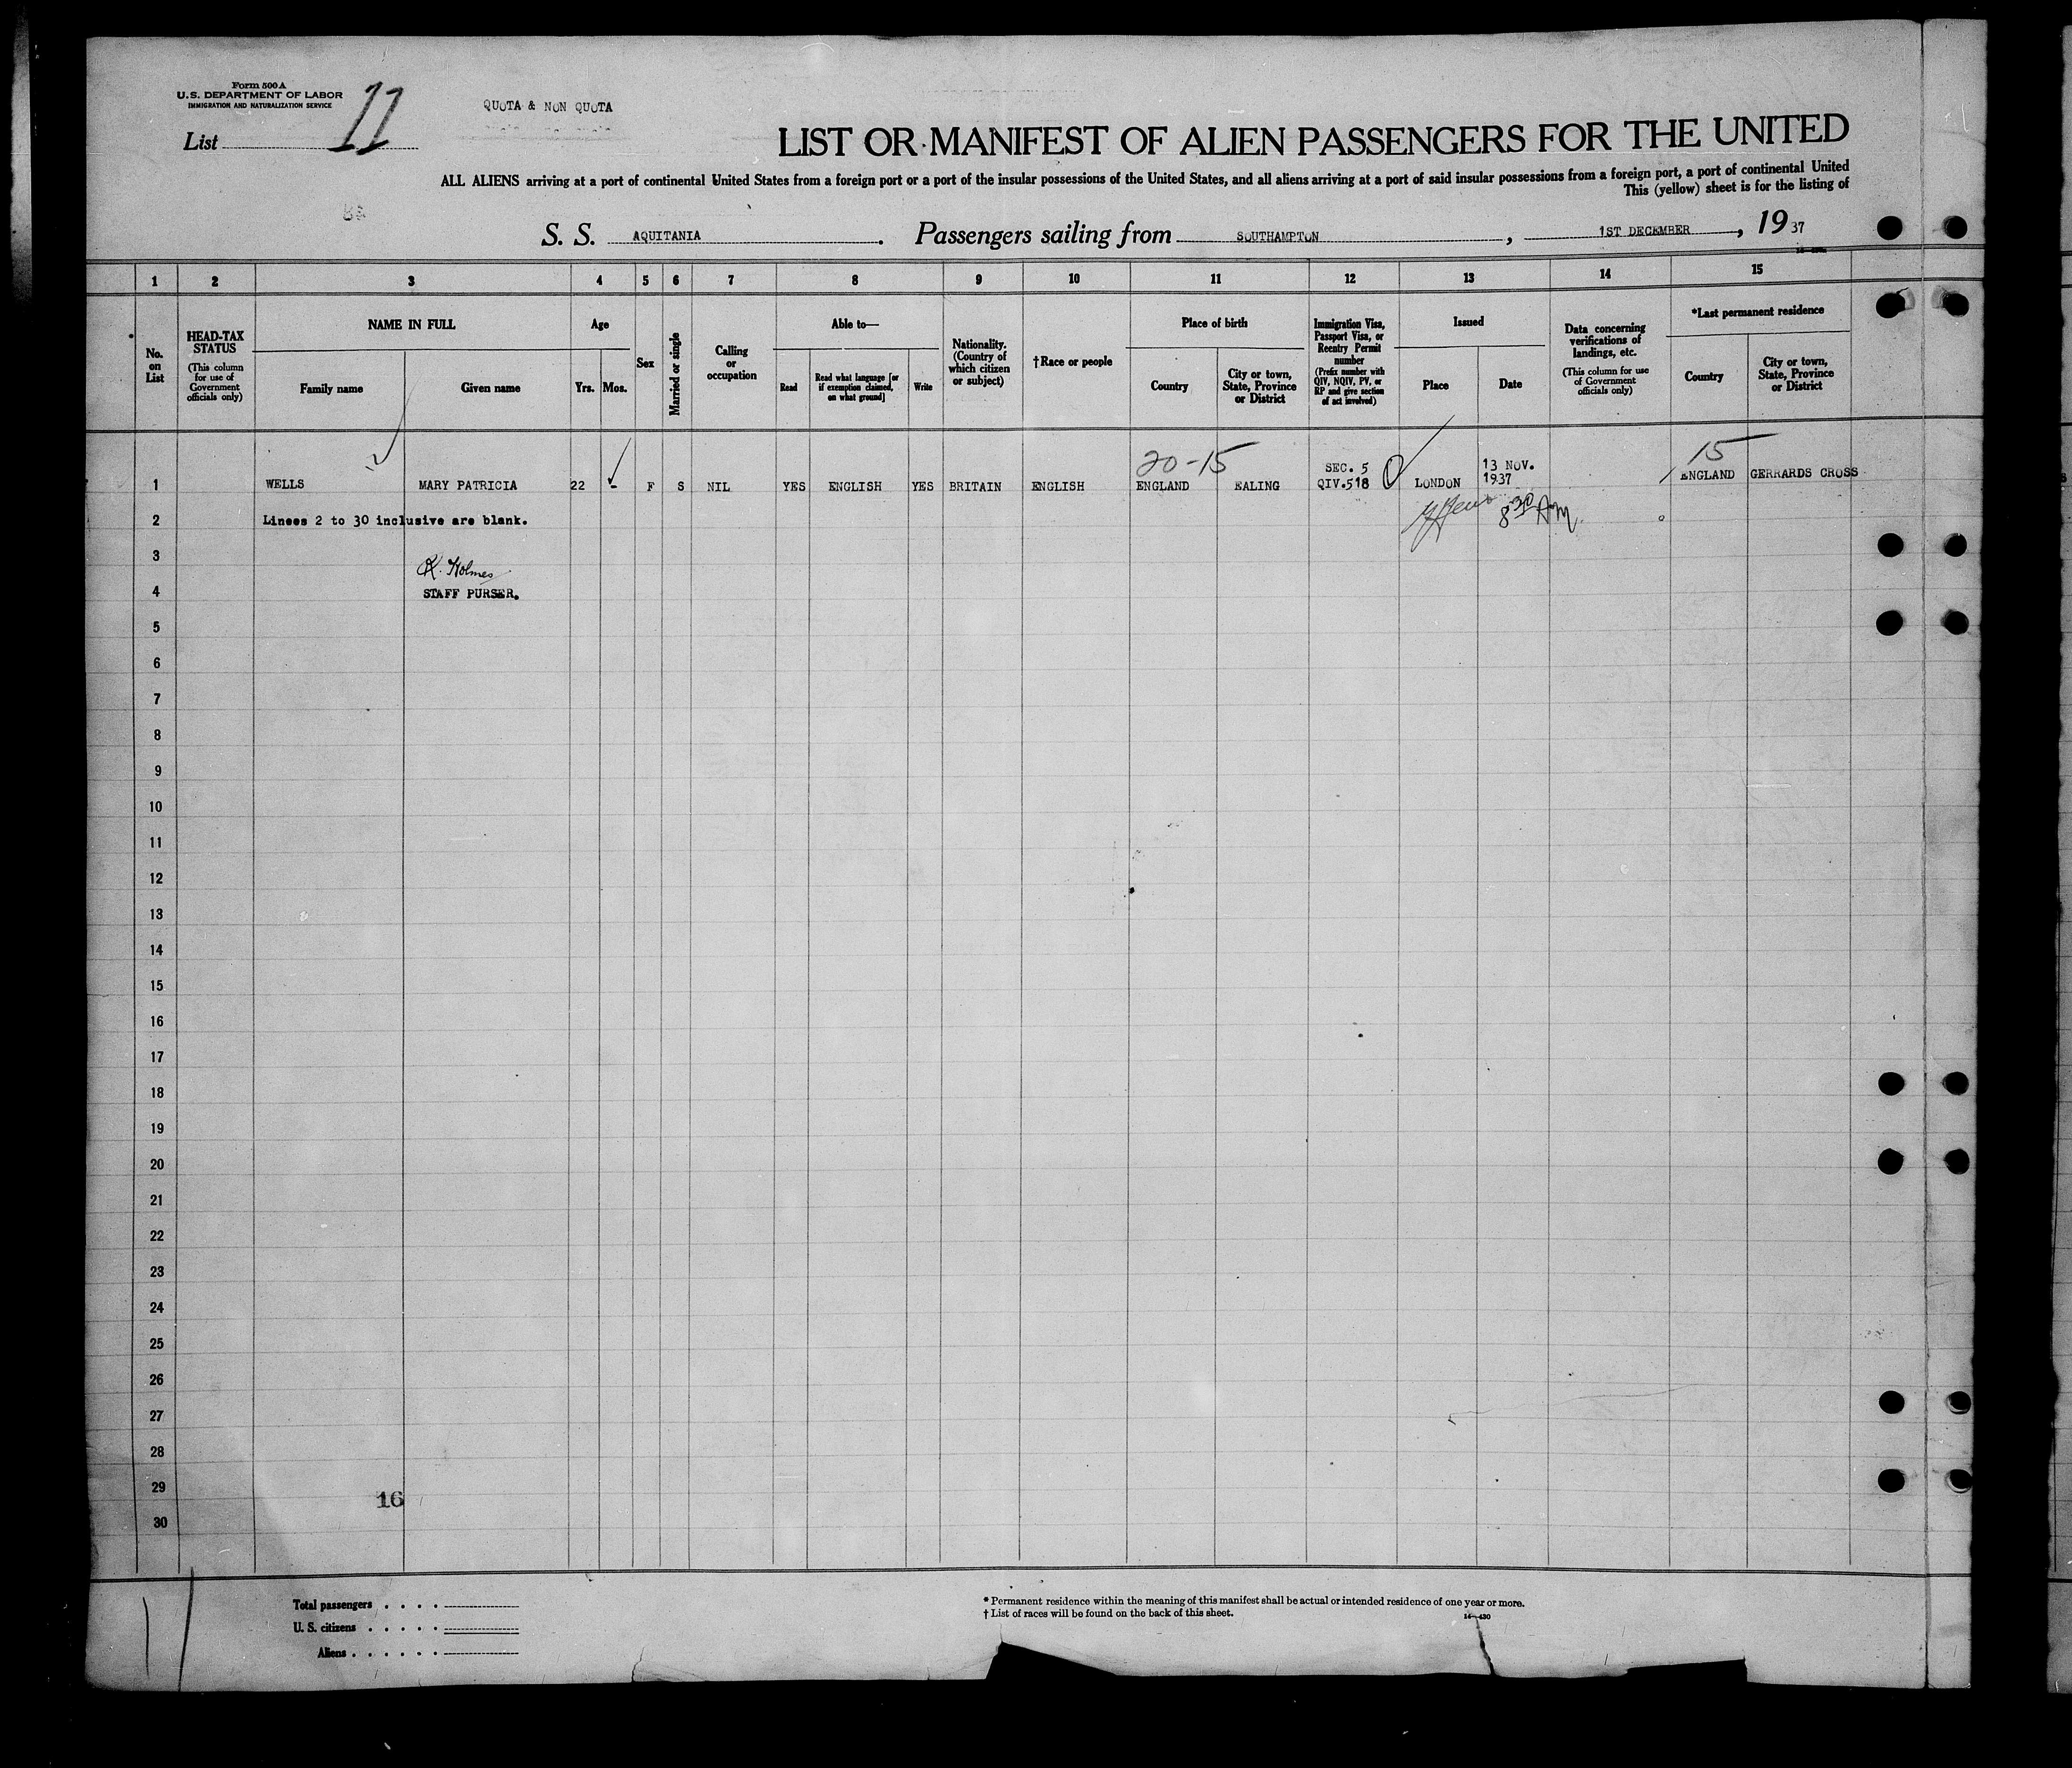 Form 500 A
U.S. DEPARTMENT OF LABOR
IMMIGRATION AND NATURALIZATION SERVICE
List 11
QUOTA & NON QUOTA
LIST OR MANIFEST OF ALIEN PASSENGERS FOR THE UNITED
ALL ALIENS arriving at a port of continental United States from a foreign port or a port of the insular possessions of the United States, and all aliens arriving at a port of said insular possessions from a foreign port, a port of continental United
This (yellow) sheet is for the listing of
S. S. AQUITANIA. Passengers sailing from SOUTHAMPTON, 1ST DECEMBER, 1937
1 2 3 4 5 6 7 8 9 10 11 12 13 14 15
No. on List
HEAD-TAX STATUS
(This column for use of Government officials only)
NAME IN FULL
Family name
Given name
Age
Yrs. Mos.
Sex
Married or single
Calling or occupation
Able to—
Read
Read what language [or if exemption claimed, on what ground]
Write
Nationality. (Country of which citizen or subject)
†Race or people
Place of birth
Country
City or town, State, Province or District
Immigration Visa, Passport Visa, or Reentry Permit number
(Prefix number with QIV, NQIV, PV, or RP and give section of act involved)
Issued
Place
Date
Data concerning verifications of landings, etc.
(This column for use of Government officials only)
*Last permanent residence
Country
City or town, State, Province or District
20-15
15
SEC. 5
13 NOV.
1 WELLS MARY PATRICIA 22 - F S NIL YES ENGLISH YES BRITAIN ENGLISH ENGLAND EALING QIV.518 LONDON 1937 ENGLAND GERRARDS CROSS
2 Linees 2 to 30 inclusive are blank.
8 30 AM
3
K. Holmes
4 STAFF PURSER.
5
6
7
8
9
10
11
12
13
14
15
16
17
18
19
20
21
22
23
24
25
26
27
28
29
16
30
Total passengers . . . .
U. S. citizens . . . . .
Aliens . . . . . .
* Permanent residence within the meaning of this manifest shall be actual or intended residence of one year or more.
† List of races will be found on the back of this sheet.